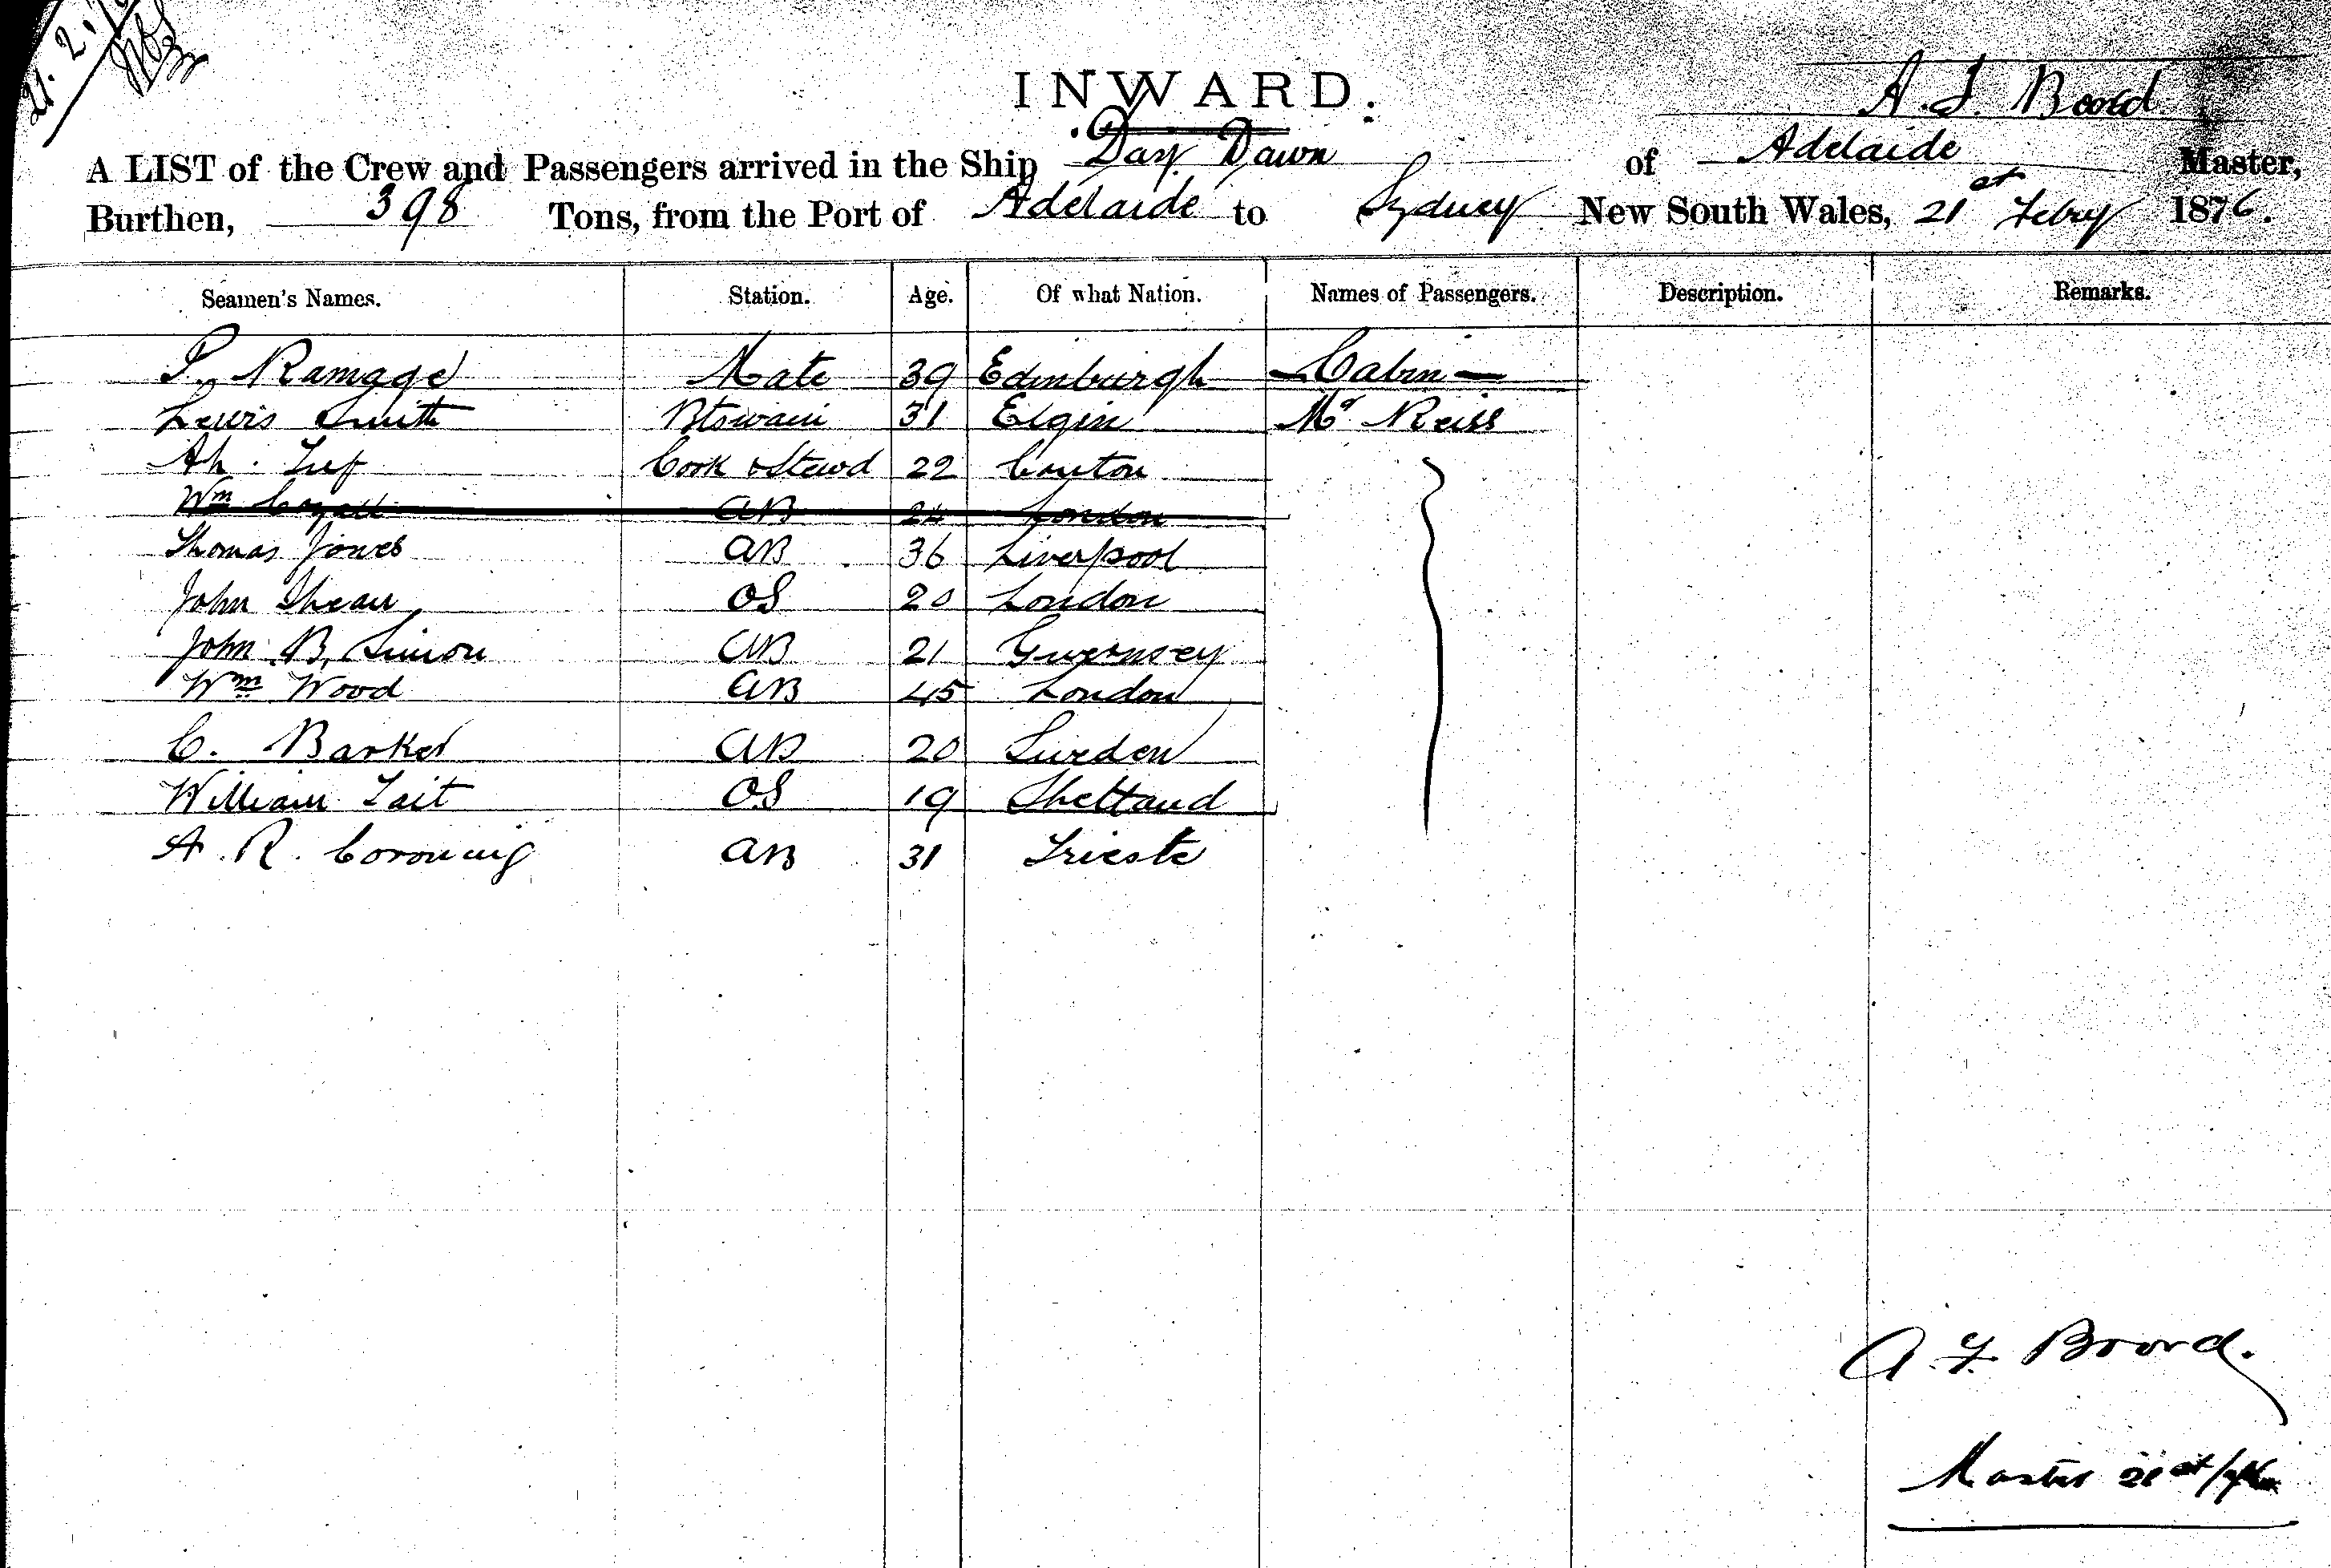 21. 2.
INWARD.
A. F. Boord
A LIST of the Crew and Passengers arrived in the Ship Day Dawn of Adelaide Master,
Burthen, 398 Tons, from the Port of Adelaide to Sydney New South Wales, 21st Febry 1876.
Seamen's Names. Station. Age. Of what Nation. Names of Passengers. Description. Remarks.
P. Ramage Mate 39 Edinburgh Cabin
Lewis Smith Btswain 31 Elgin Mr Reiss
Ah. Cook & Stewd 22 Canton
Wm AB 24 London
Thomas Jones AB 36 Liverpool
John Shean OS 20 London
John B. Simon AB 21 Guernsey
Wm Wood AB 45 London
C. Barker AB 20 Sweden
William Tait OS 19 Shetland
A. R. AB 31 Trieste
A. F. Boord.
Master 21st